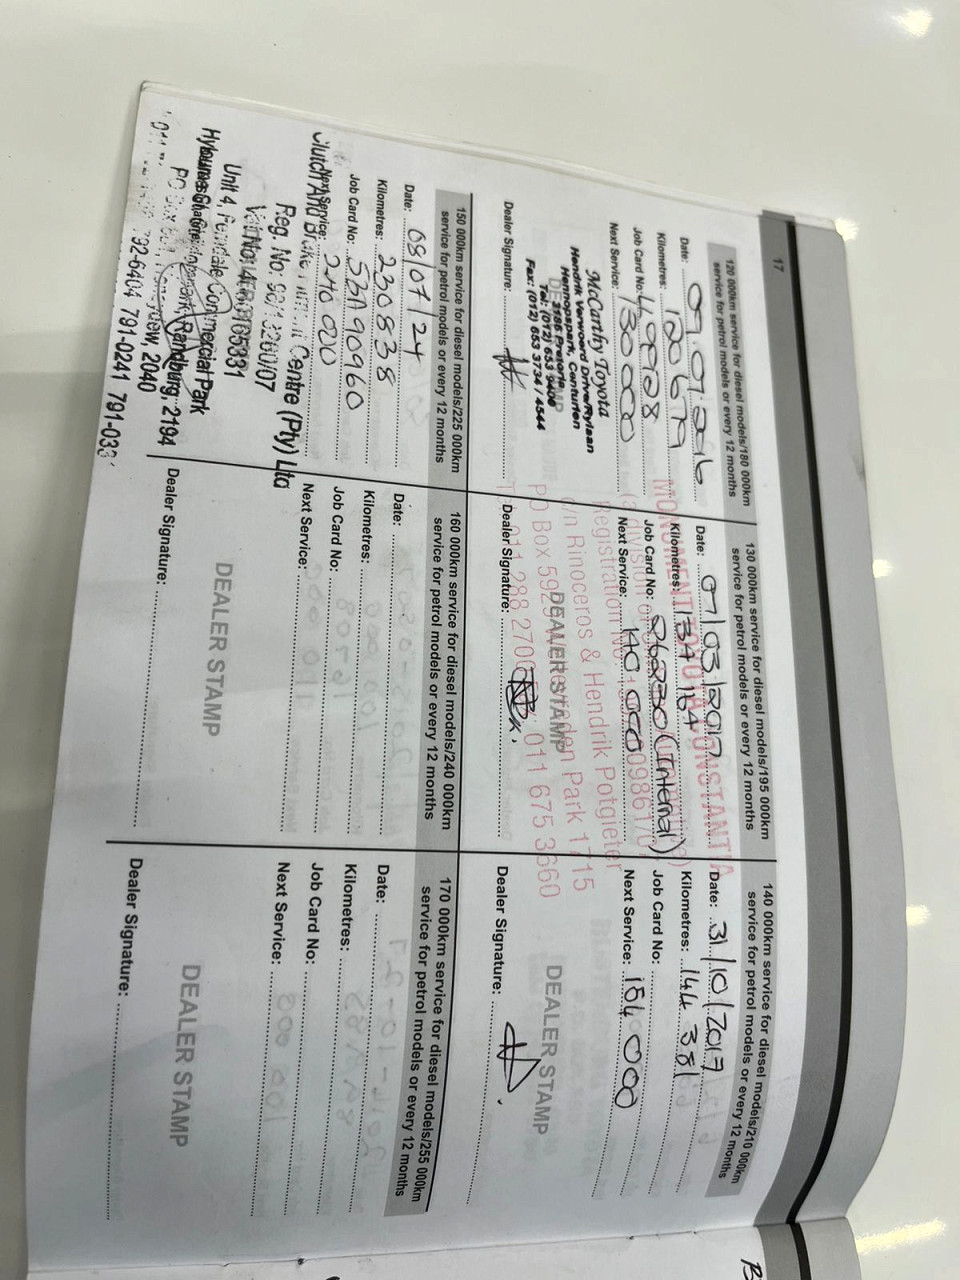 17
120 000km service for diesel models/180 000km
service for petrol models or every 12 months
Date: 07.07.2016
Kilometres: 120679
Job Card No:
Next Service: 130000
McCarthy Toyota
Hendrik Verwoerd Drive/Rylaan
Hennopspark, Centurion
3186 Pretoria
Tel: (012) 653
Fax: (012) 653 3734 / 4544
Dealer Signature:
130 000km service for diesel models/195 000km
service for petrol models or every 12 months
Date: 07/03/2017
Kilometres: 134 184
Job Card No: 26230 (Internal)
Next Service: 140 000
MONUMENT TOYOTA CONSTANTIA
(a division of
Registration No:
c/n Rinoceros & Hendrik Potgieter
DEALER STAMP
Box 592
den Park 1715
011 288 270
011 675 3660
Dealer Signature:
140 000km service for diesel models/210 000km
service for petrol models or every 12 months
Date: 31/10/2017
Kilometres: 144 381
Job Card No:
Next Service: 154 000
DEALER STAMP
Dealer Signature:
150 000km service for diesel models/225 000km
service for petrol models or every 12 months
Date: 08/07/24
Kilometres: 230838
Job Card No: SBA90960
Next Service: 240 000
Clutch And Brake Centre (Pty) Ltd
Reg. No.
Vat No: 4680105331
Unit 4, Ferndale Commercial Park
Randburg, 2194
2040
792-6404 791-0241
160 000km service for diesel models/240 000km
service for petrol models or every 12 months
Date:
Kilometres:
Job Card No:
Next Service:
DEALER STAMP
Dealer Signature:
170 000km service for diesel models/255 000km
service for petrol models or every 12 months
Date:
Kilometres:
Job Card No:
Next Service:
DEALER STAMP
Dealer Signature: